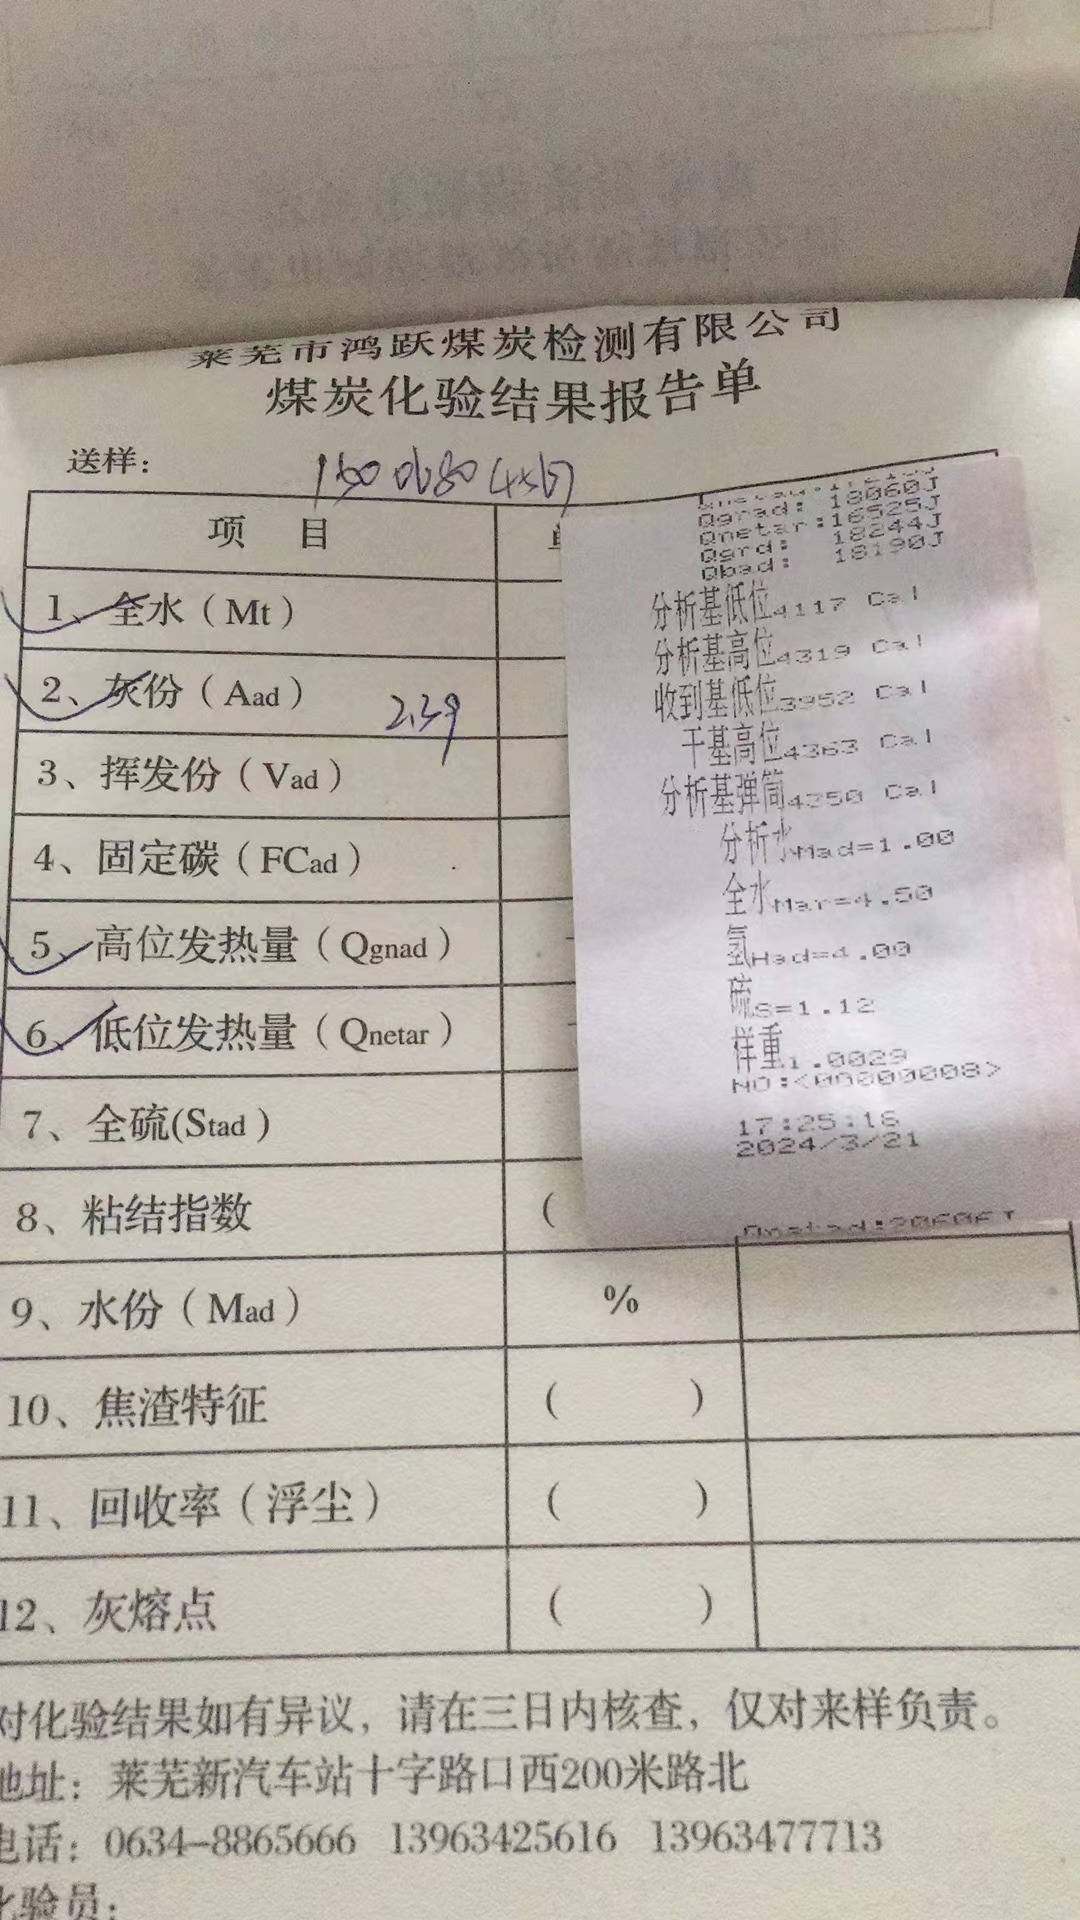 莱芜市鸿跃煤炭检测有限公司
煤炭化验结果报告单
送样:
项 目
1、全水（Mt）
2、灰份（Aad）
2.39
3、挥发份（Vad）
4、固定碳（FCad）
5、高位发热量（Qgnad）
6、低位发热量（Qnetar）
7、全硫(Stad)
8、粘结指数 (
9、水份（Mad） %
10、焦渣特征 ( )
11、回收率（浮尘） ( )
12、灰熔点 ( )
Qgrad: 18060J
Qnetar:16525J
Qgrd: 18244J
Qbad: 18190J
分析基低位4117 Cal
分析基高位4319 Cal
收到基低位3952 Cal
干基高位4363 Cal
分析基弹筒4350 Cal
分析水Mad=1.00
全水Mar=4.50
氢Had=4.00
硫S=1.12
样重1.0029
NO:<00000008>
17:25:16
2024/3/21
对化验结果如有异议，请在三日内核查，仅对来样负责。
地址：莱芜新汽车站十字路口西200米路北
电话：0634-8865666 13963425616 13963477713
化验员：